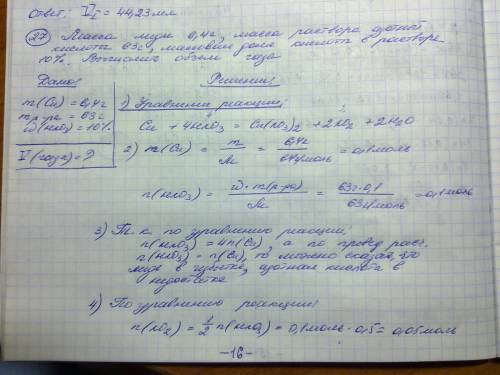 Ответ: V₁ = 44,23 мл
(27) Масса меди 6,4г, масса раствора азотной
кислоты 63г, массовая доля кислоты в растворе
10%. Вычислить объем газа
Дано: Решение:
m(Cu) = 6,4г
m р-ра = 63г
ω(HNO₃) = 10%
V(газа) = ?
1) Уравнение реакции:
Cu + 4HNO₃ = Cu(NO₃)₂ + 2NO₂ + 2H₂O
2) n(Cu) = m/M = 6,4г/64г/моль = 0,1моль
n(HNO₃) = ω·m(р-ра)/M = 63г·0,1/63г/моль = 0,1моль
3) Т.к. по уравнению реакции:
n(HNO₃) = 4n(Cu), а по провед. расч.
n(HNO₃) = n(Cu), то можно сказать, что
медь в избытке, азотная кислота в
недостатке
4) По уравнению реакции:
n(NO₂) = 1/2 n(HNO₃) = 0,1моль·0,5 = 0,05моль
-16-